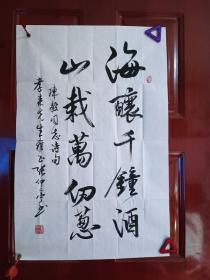 海釀千鐘酒
山栽萬仞葱
陳毅同志詩句
孝来先生雅正張仲亭書